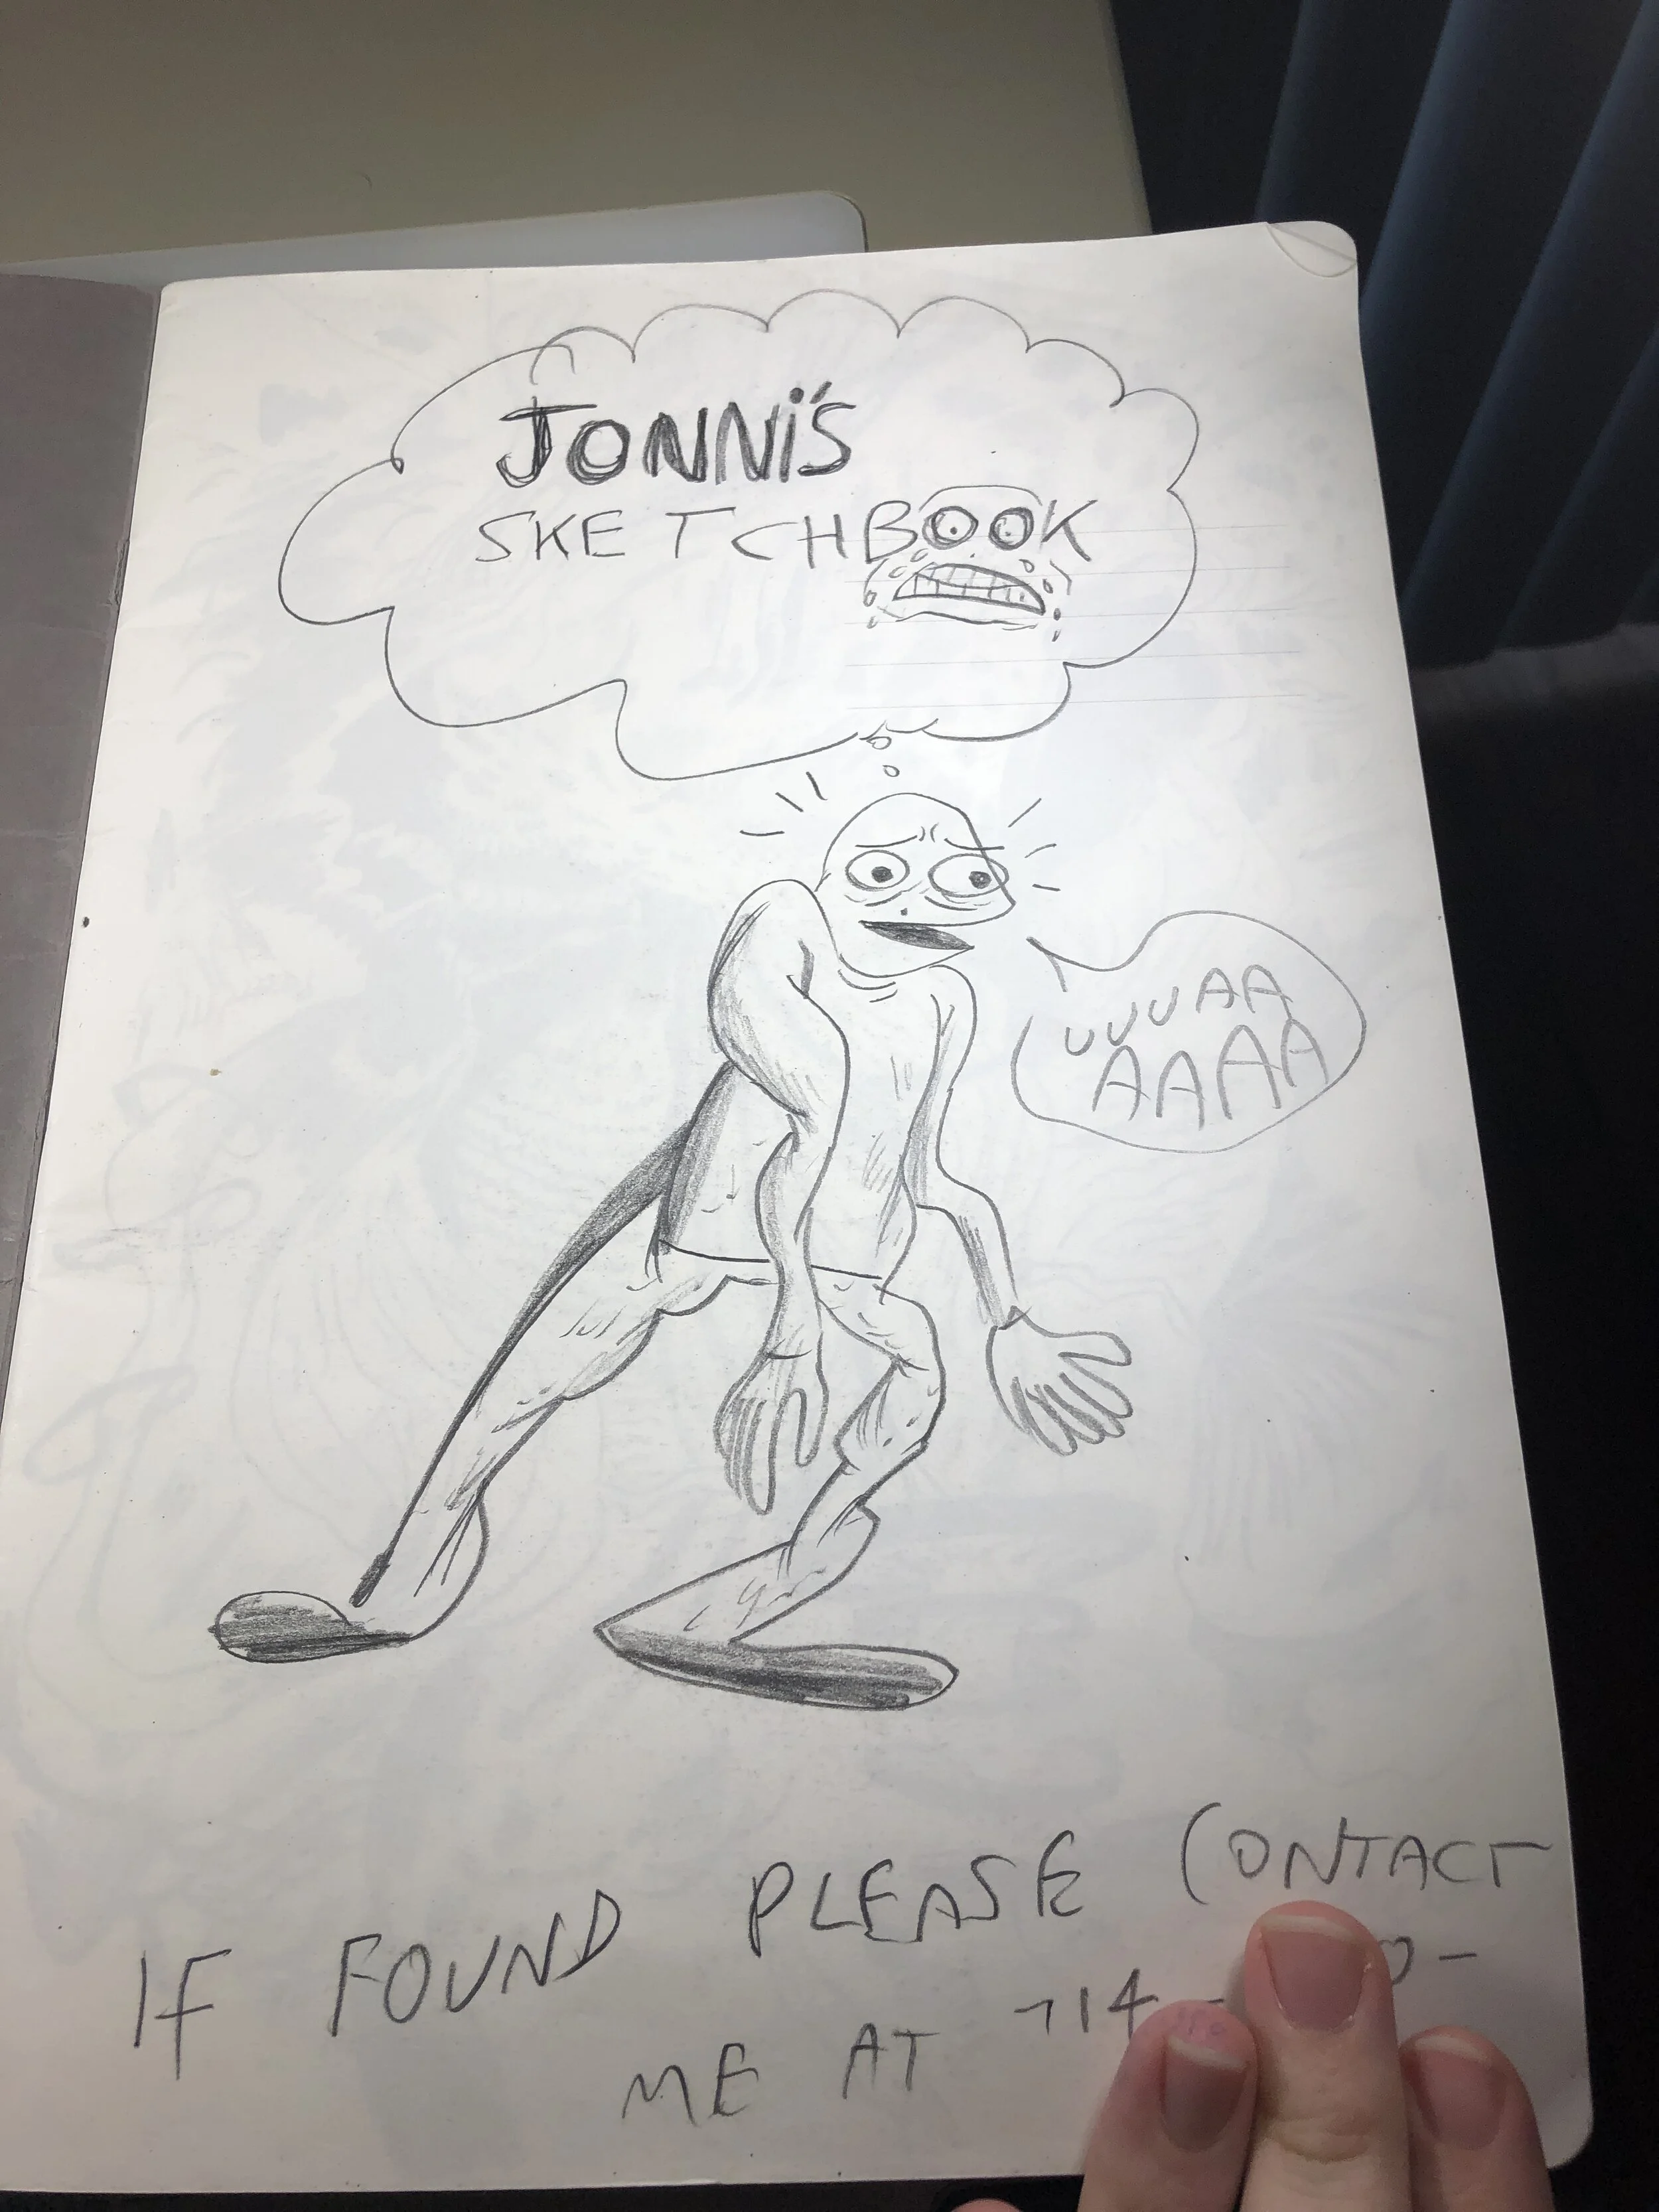 JONNi'S
SKETCHBOOK
UUUAA
AAAA
IF FOUND PLEASE CONTACT
ME AT 714 - 0-